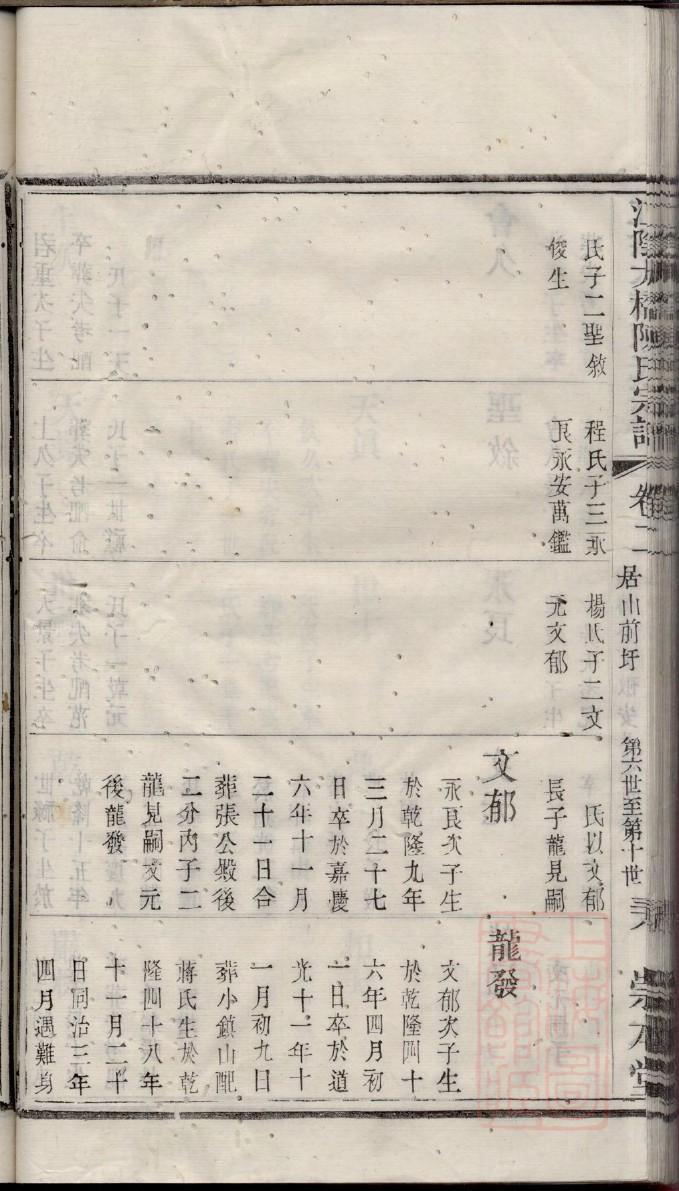 江陰九橋陳氏宗譜
卷二
居山前圩
第六世至第十世
崇本堂
氏子二聖敘
俊生
程氏子三永
良永安萬鑑
楊氏子二文
元文郁
氏以文郁
長子龍見嗣
文郁
永良次子生
於乾隆九年
三月二十七
日卒於嘉慶
六年十一月
二十一日合
葬張公殿後
二分丙子二
龍見嗣文元
後龍發
龍發
文郁次子生
於乾隆四十
六年四月初
一日卒於道
光十一年十
一月初九日
葬小鎮山配
蔣氏生於乾
隆四十八年
十一月二十
日同治三年
四月遇難身